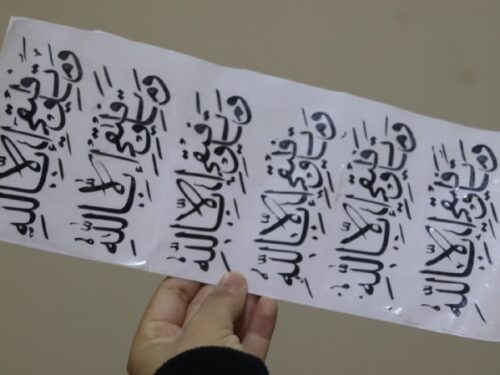 وما توفيقي إلا بالله
وما توفيقي إلا بالله
وما توفيقي إلا بالله
وما توفيقي إلا بالله
وما توفيقي إلا بالله
وما توفيقي إلا بالله